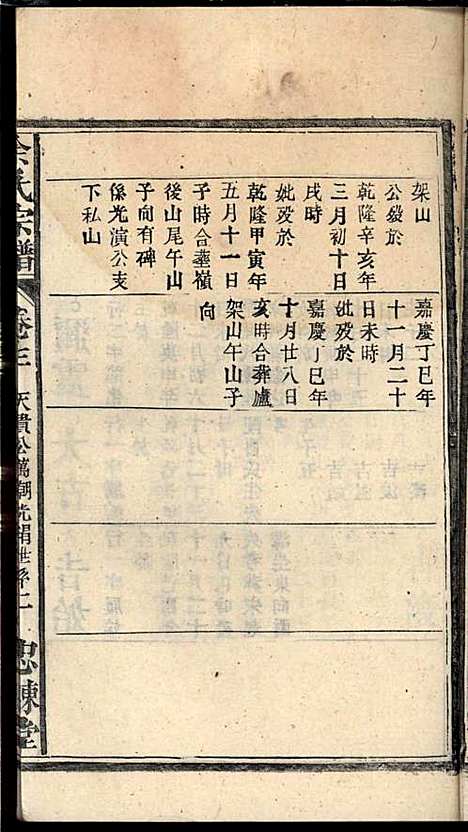 架山
公歿於
乾隆辛亥年
三月初十日
戌時
妣歿於
乾隆甲寅年
五月十一日
子時合塟嶺
後山尾午山
子向有碑
係光演公支
下私山
嘉慶丁巳年
十一月二十
日未時
妣歿於
嘉慶丁巳年
十月廿八日
亥時合葬廬
架山午山子
向
余氏宗譜
卷三
天貴公萬潮光涓世系二
忠諫堂